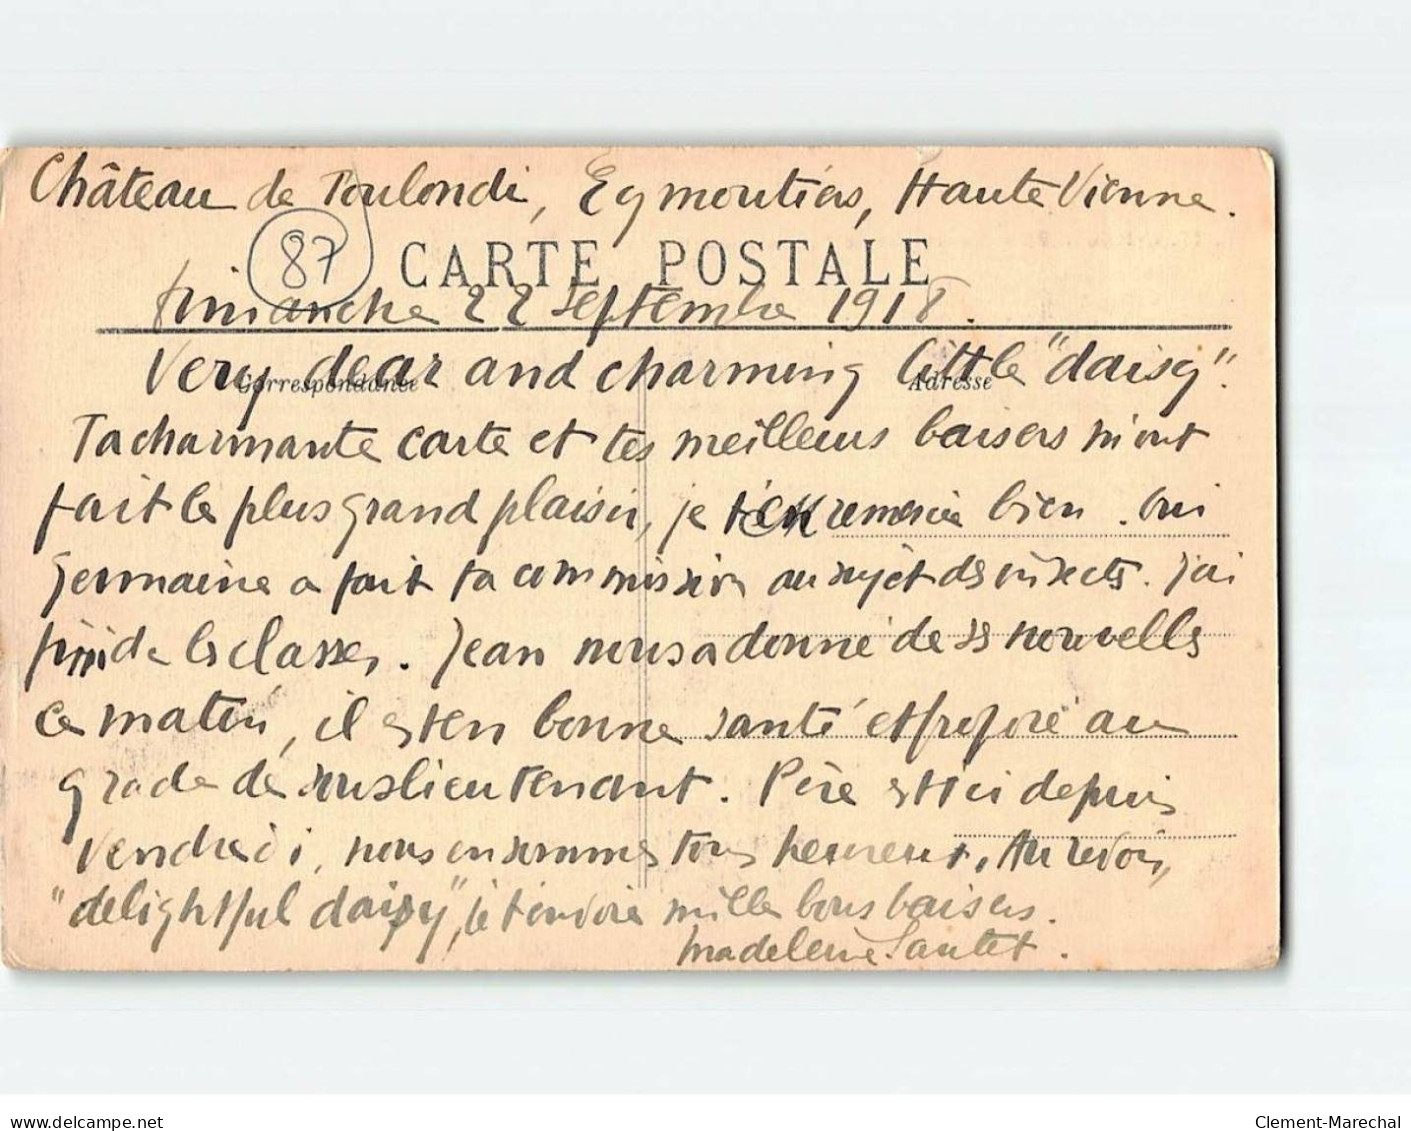 Château de Toulondi, Eymoutiers, Haute Vienne.
87
CARTE POSTALE
Dimanche 22 Septembre 1918.
Correspondance
Adresse
Very dear and charming little "daisy".
Ta charmante carte et tes meilleurs baisers m'ont
fait le plus grand plaisir, je t'en remercie bien. oui
Germaine a fait ta commission au sujet des insectes. j'ai
fini de les classer. Jean nous a donné de ses nouvelles
ce matin, il est en bonne santé et proposé au
grade de sous lieutenant. Père est ici depuis
Vendredi, nous en sommes tous heureux. Au revoir,
"delightful daisy", je t'envoie mille bons baisers.
Madeleine Sautet.
www.delcampe.net
Clement-Marechal